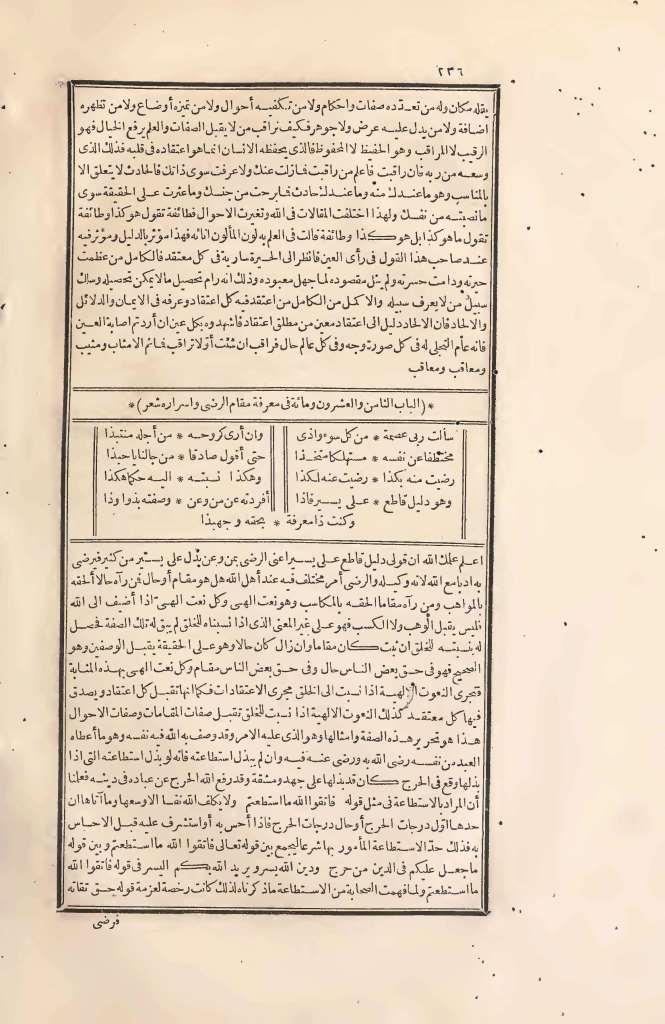 ٢٣٦
يقله مكان وله من تعدده صفات واحكام ولا من تكفيه أحوال ولا من تميزه أوضاع ولا من تظهره
اضافة ولا من يدل عليه عرض ولا جوهر فكيف نراقب من لا يقبل الصفات والعلم يرفع الخيال فهو
الرقيب لا المراقب وهو الحفيظ لا المحفوظ فالذى يحفظه الانسان انما هو اعتقاده فى قلبه فذلك الذى
وسعه من ربه فان راقبت فاعلم من راقبت فما زلت عنك ولا عرفت سوى ذاتك فالحادث لا يتعلق الا
بالمناسب وهو ما عندك منه وما عندك حادث فما برحت من جنسك وما عثرت على الحقيقة سوى
ما نصبته من نفسك ولهذا اختلفت المقالات فى الله وتغيرت الاحوال فطائفة تقول هو كذا وطائفة
تقول ما هو كذا بل هو كذا وطائفة قالت فى العلم به لون الماء لون انائه فهذا مؤثر بالدليل ومؤثر فيه
عند صاحب هذا القول فى رأى العين فانظر الى الحيرة سارية فى كل معتقد فالكامل من عظمت
حيرته ودامت حسرته ولم ينل مقصوده لما جهل معبوده وذلك انه رام تحصيل ما لا يمكن تحصيله وسلك
سبيل من لا يعرف سبيله والاكمل من الكامل من اعتقد فيه كل اعتقاد وعرفه فى الايمان والدلائل
والالحاد فان الالحاد دليل الى اعتقاد معين من مطلق اعتقاد فاشهدوه بكل عين ان أردتم اصابة العين
فانه عام التجلى له فى كل صورة وجه وفى كل عالم حال فراقب ان شئت أولا تراقب فما ثم الا مثاب ومثيب
ومعاقب ومعاقب
* (الباب الثامن والعشرون ومائة فى معرفة مقام الرضى واسراره شعر) *
سألت ربى عصمة * من كل سوء واذى
وان أرى كروحه * من أجله منتبذا
مختطفا عن نفسه * مستهلكا متخذا
حتى أقول صادقا * من حالنا يا حبذا
رضيت منه بكذا * رضيت عنه لكذا
وهكذا نسبته * اليه حكما هكذا
وهو دليل قاطع * على يسير فاذا
أفردته عن من وعن * وصفته بذو وذا
وكنت ذا معرفة * بحقه وجهبذا
اعلم علمك الله ان قولى دليل قاطع على يسير اعنى الرضى بمن وعن يدل على يسير من كثير فيرضى
به ادبا مع الله لانه وكيله والرضى أمر مختلف فيه عند أهل الله هل هو مقام أو حال فمن رآه حالا ألحقه
بالمواهب ومن رآه مقاما الحقه بالمكاسب وهو نعت الهى وكل نعت الهى اذا أضيف الى الله
فليس يقبل الوهب ولا الكسب فهو على غير المعنى الذى اذا نسبناه للخلق لم يبق له تلك الصفة فحصل
له بنسبته للخلق ان ثبت كان مقاما وان زال كان حالا وهو على الحقيقة يقبل الوصفين وهو
الصحيح فهو فى حق بعض الناس حال وفى حق بعض الناس مقام وكل نعت الهى بهذه المثابة
فتجرى النعوت الالهية اذا نسبت الى الخلق مجرى الاعتقادات فكما انها تقبل كل اعتقاد ويصدق
فيها كل معتقد كذلك النعوت الالهية اذا نسبت للخلق تقبل صفات المقامات وصفات الاحوال
هذا هو تحرير هذه الصفة وامثالها وهو الذى عليه الامر وقد وصف به الله فيه نفسه وهو ما أعطاه
العبد من نفسه رضى الله به ورضى عنه فيه وان لم يبذل استطاعته فانه لو بذل استطاعته التى اذا
بذلها وقع فى الحرج كان قد بذلها على جهد ومشقة وقد رفع الله الحرج عن عباده فى دينه فعلمنا
أن المراد بالاستطاعة فى مثل قوله فاتقوا الله ما استطعتم ولا يكلف الله نفسا الا وسعها وما آتاها ان
حدها أول درجات الحرج أو حال درجات الحرج فاذا أحس به أو استشرف عليه قبل الاحساس
به فذلك حد الاستطاعة المأمور بها شرعا ليجمع بين قوله تعالى فاتقوا الله ما استطعتم وبين قوله
ما جعل عليكم فى الدين من حرج ودين الله يسر ويريد الله بكم اليسر فى قوله فاتقوا الله
ما استطعتم ولما فهمت الصحابة من الاستطاعة ما ذكرناه لذلك كانت رخصة لعزمة قوله حق تقاته
فرضى